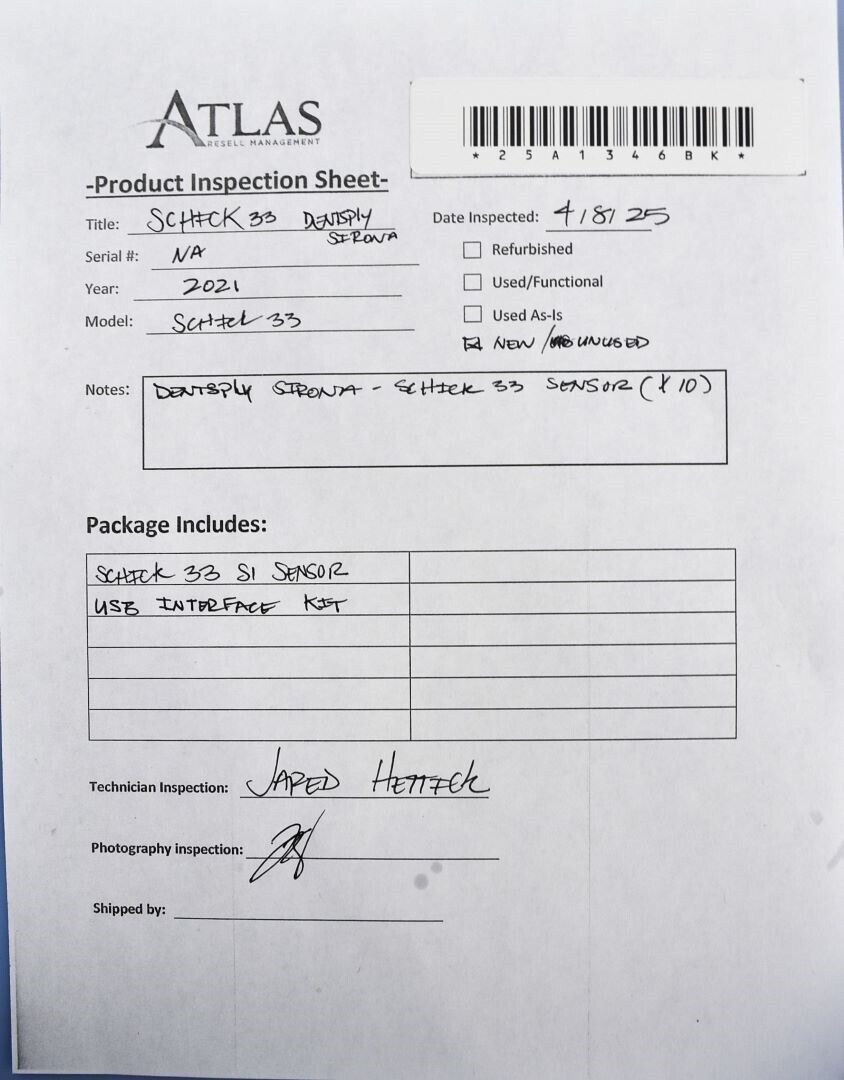 ATLAS
RESELL MANAGEMENT
*25A1346BK*
-Product Inspection Sheet-
Title: SCHICK 33 DENTSPLY
SIRONA
Date Inspected: 4/8/25
Serial #: NA
Refurbished
Year: 2021
Used/Functional
Model: SCHICK 33
Used As-Is
NEW / UNUSED
Notes: DENTSPLY SIRONA - SCHICK 33 SENSOR (X10)
Package Includes:
SCHICK 33 SI SENSOR
USB INTERFACE KIT
Technician Inspection: JARED
Photography inspection:
Shipped by: